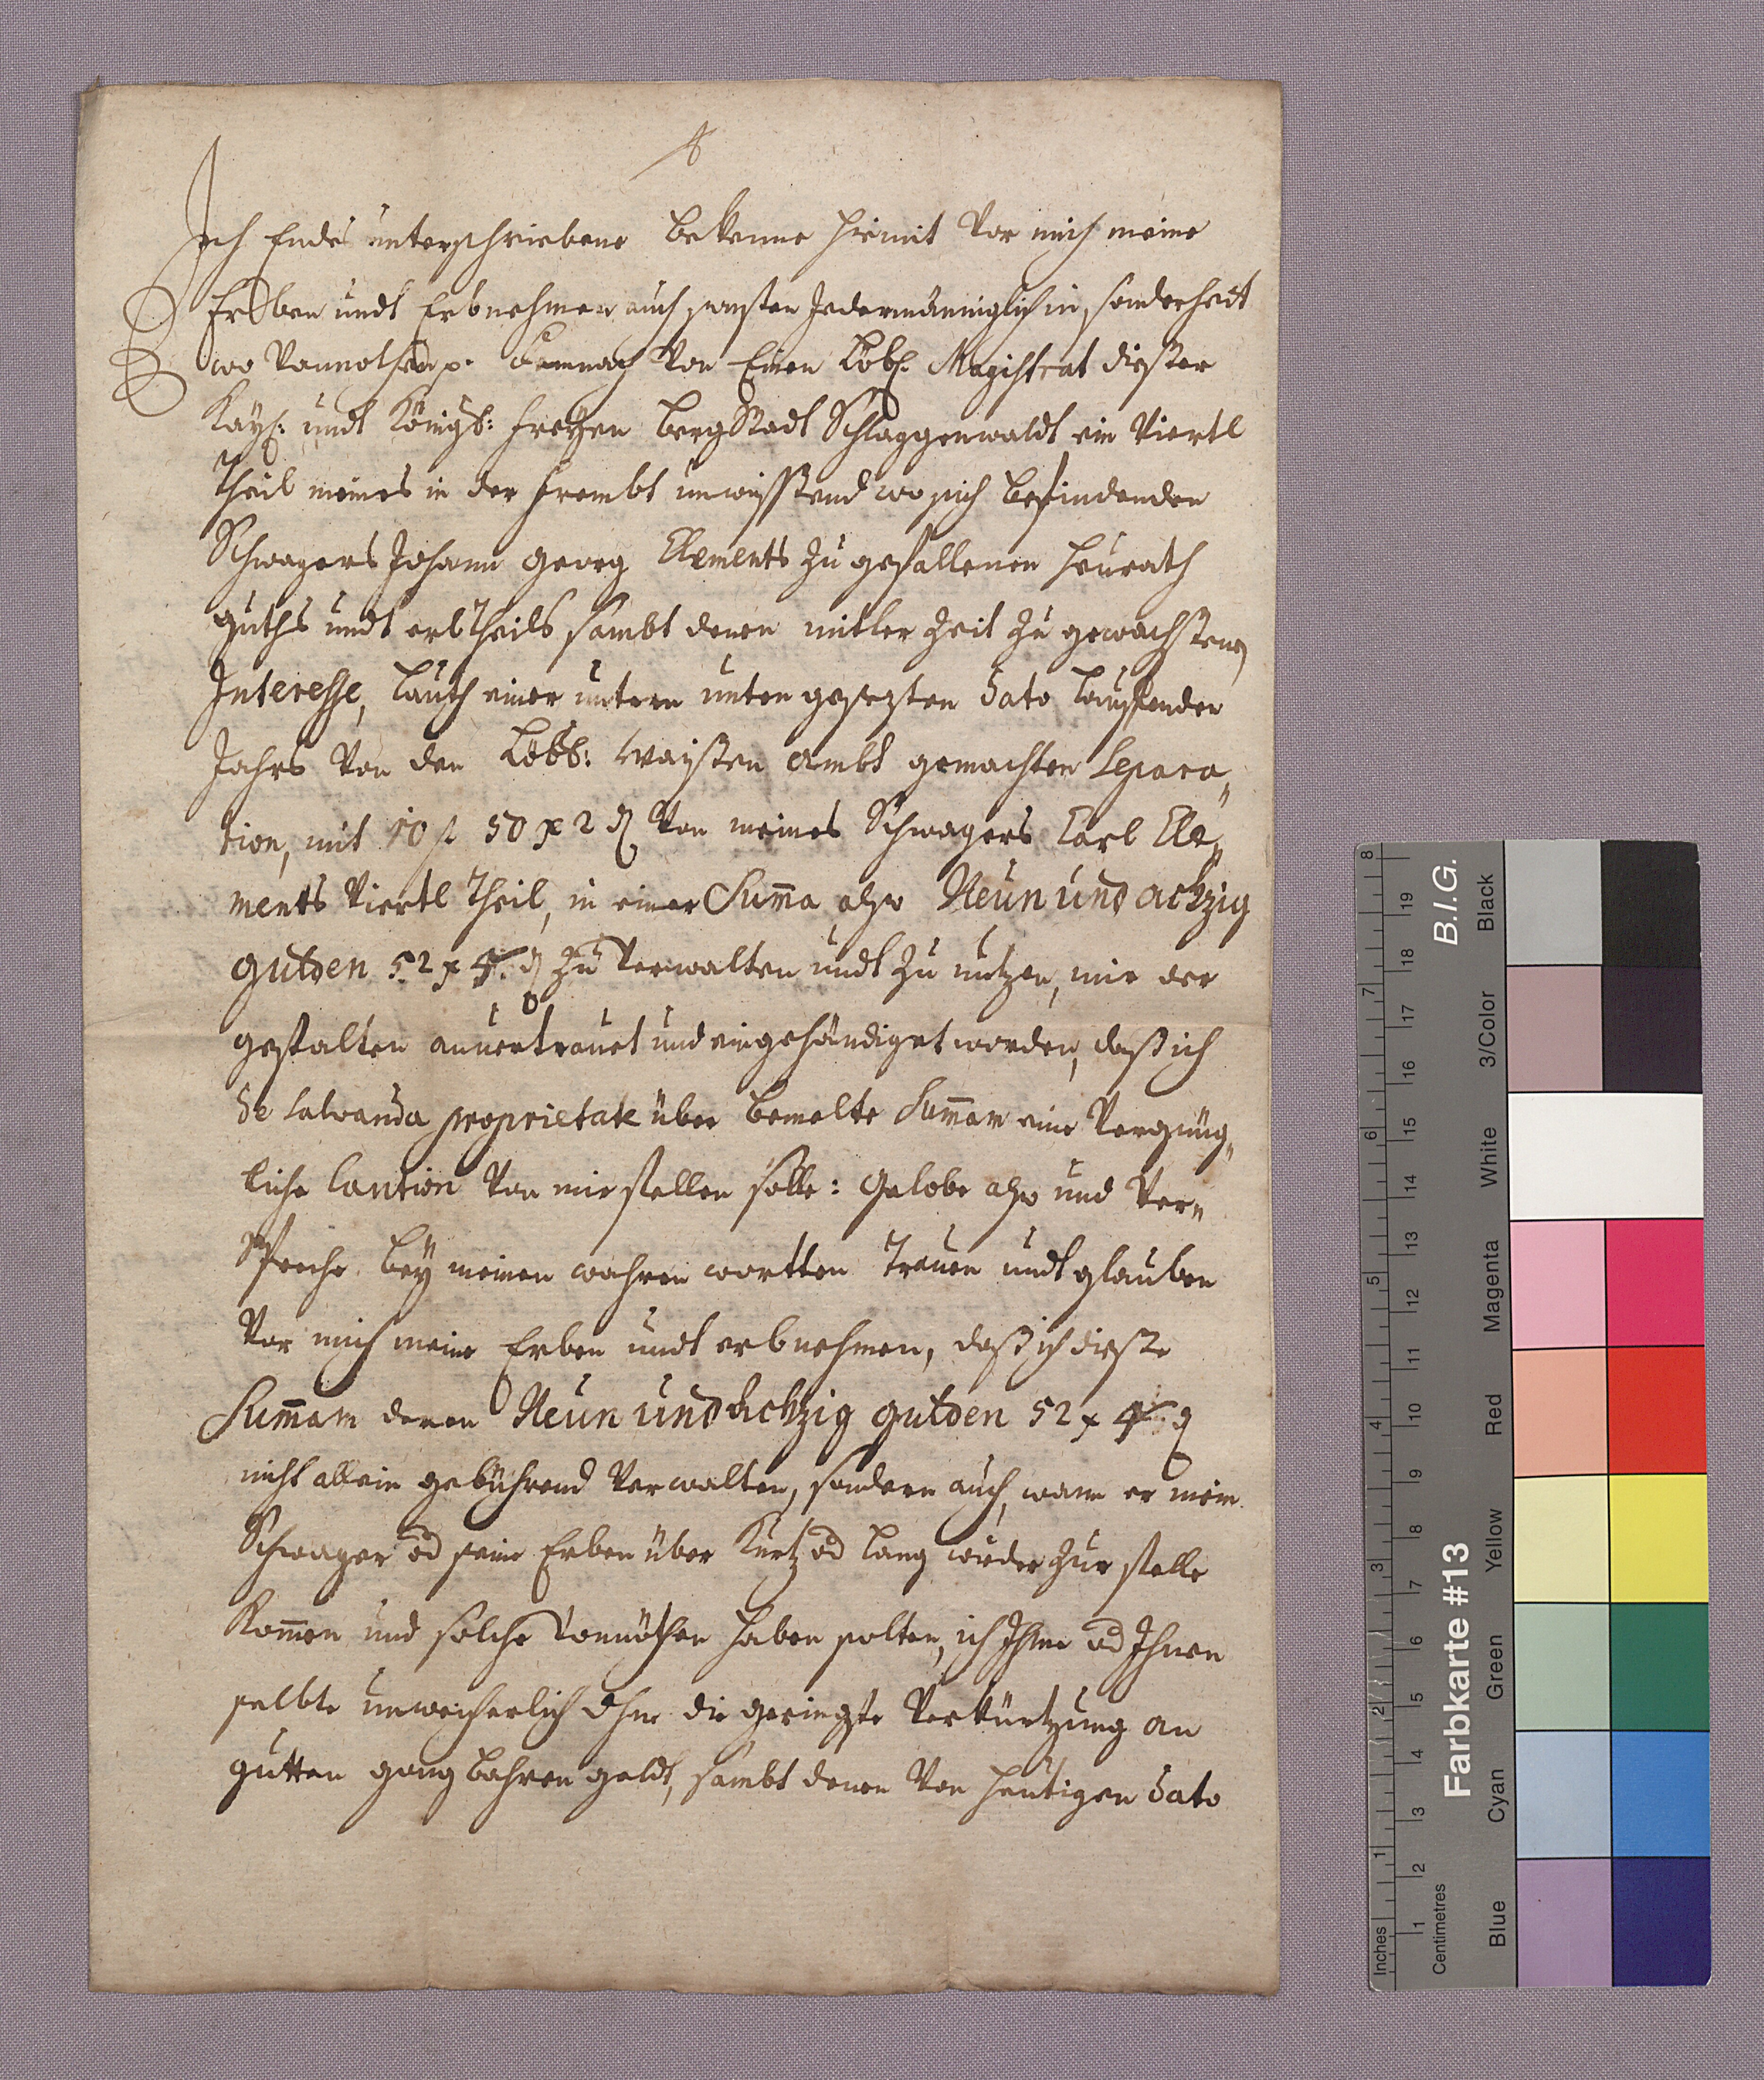 Ich Endes unterschriebene Bekenne hiemit Vor mich meine
Erben undt Erbnehmen auch sonsten Jedermänniglich in sonderheit
wo Vonnöthen p. Demnach Von Einen Löbl. Magistrat dießer
Kayl: undt Königl: freyen BergStadt Schlaggenwaldt ein Viertl
Theil meines in der frembt unwissend wo sich befindenden
Schwagers Johann Georg Elements Zu gefallenen Heurath
guths undt erbtheils sambt denen mitler Zeit Zu gewachsenen
Interesse, Lauth einer untern unten gesezten Dato Lauffenden
Jahrs Von den Löbl: Waysen Ambt gemachten Separa„
tion, mit 10 fl 50 x 2 d Von meines Schwagers Carl Ele„
ments Viertl Theil, in einer Sum̄a also Neun und achzig
gulden 52 x 4 d Zu Verwalten undt Zu nutzen, mir der
gestalten anvertrauet und eingehändiget worden, daß ich
de salvanda proprietate über bemelte Sum̄am eine Vergnüg„
liche Caution Von mir stellen solle: Gelobe also und Ver„
Spreche bey meinen wahren wortten Trauen undt glauben
Vor mich meine Erben undt erbnehmen, daß ich dieße
Sum̄am deren Neun und Achzig gulden 52 x 4 d
nicht allein gebührend Verwalten, sondern auch, wann er mein
Schwager od seine Erben über Kurtz od Lang wieder Zur stelle
Kom̄en und solche Vonnöthen haben solten, ich Ihme od Ihnen
selbte unweicherlich ohne die geringste Verkürtzung an
gutten gang bahren geldt, sambt denen Von heutigen Dato
Inches
Centimetres
1 2 3 4 5 6 7 8
1 2 3 4 5 6 7 8 9 10 11 12 13 14 15 16 17 18 19
Farbkarte #13
B.I.G.
Blue
Cyan
Green
Yellow
Red
Magenta
White
3/Color
Black